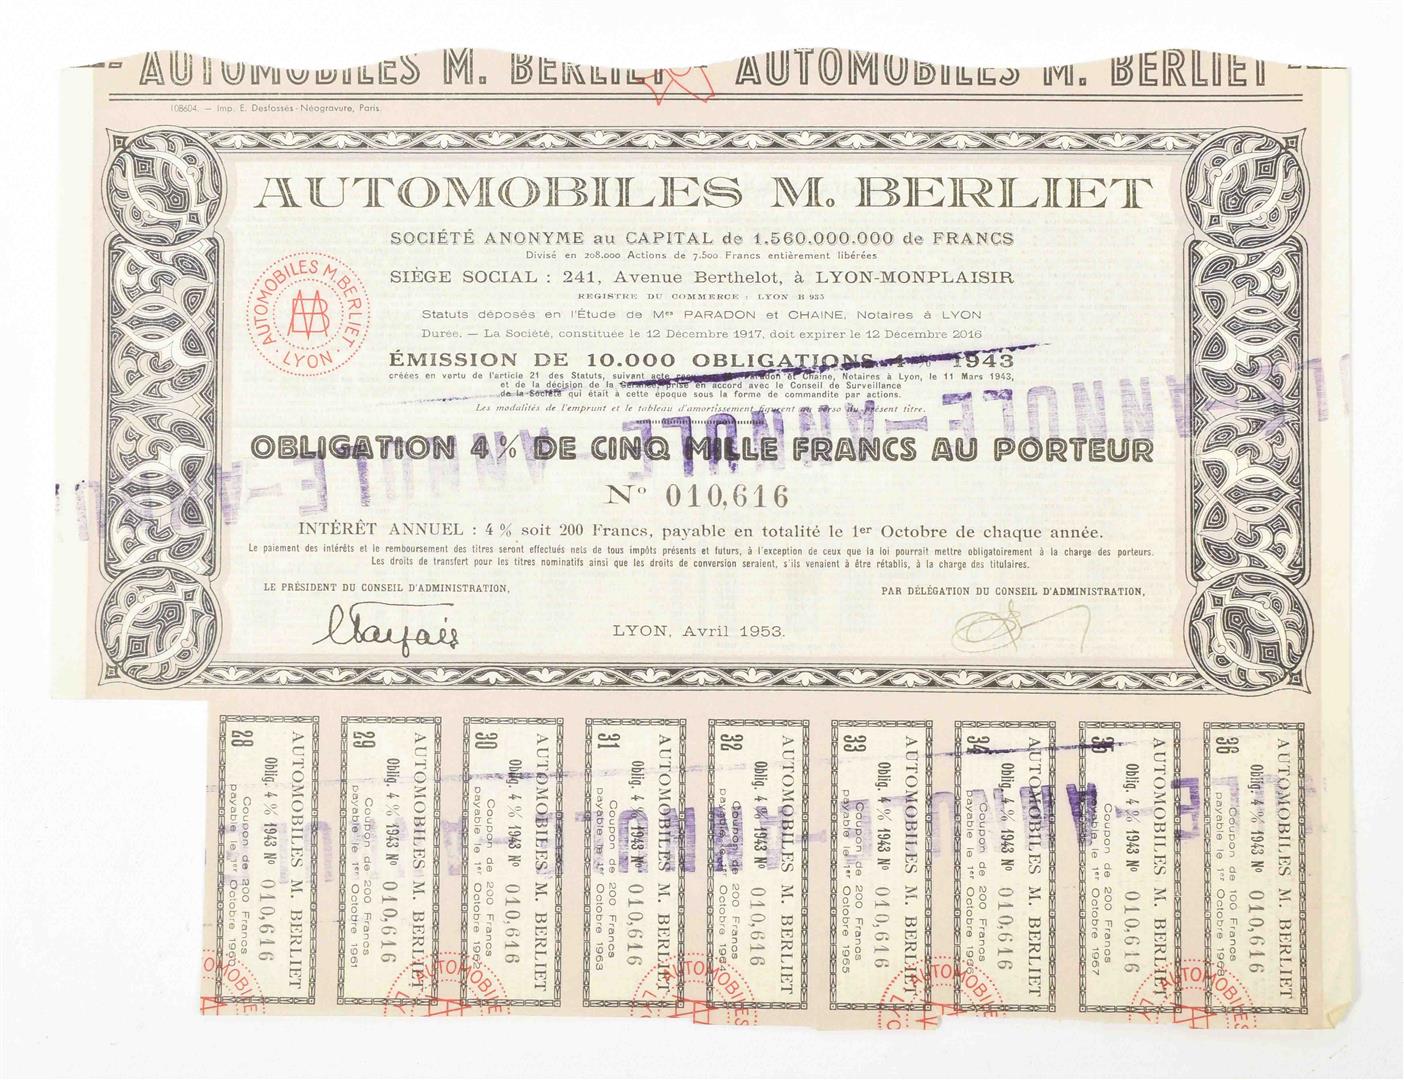 AUTOMOBILES M. BERLIET - AUTOMOBILES M. BERLIET -
108604. — Imp. E. Desfossés-Néogravure, Paris.
AUTOMOBILES M. BERLIET
SOCIÉTÉ ANONYME au CAPITAL de 1.560.000.000 de FRANCS
Divisé en 208.000 Actions de 7.500 Francs entièrement libérées
SIÈGE SOCIAL : 241, Avenue Berthelot, à LYON-MONPLAISIR
REGISTRE DU COMMERCE : LYON B 935
Statuts déposés en l'Étude de Mes PARADON et CHAINE, Notaires à LYON
Durée. — La Société, constituée le 12 Décembre 1917, doit expirer le 12 Décembre 2016
AUTOMOBILES M. BERLIET
· LYON ·
ÉMISSION DE 10.000 OBLIGATIONS 4% 1943
créées en vertu de l'article 21 des Statuts, suivant acte reçu Paradon et Chaine, Notaires à Lyon, le 11 Mars 1943,
et de la décision de la Gérance, prise en accord avec le Conseil de Surveillance
de la Société qui était à cette époque sous la forme de commandite par actions.
Les modalités de l'emprunt et le tableau d'amortissement figurent au verso du présent titre.
ANNULÉ - ANNULÉ - ANNULÉ
OBLIGATION 4% DE CINQ MILLE FRANCS AU PORTEUR
No 010,616
INTÉRÊT ANNUEL : 4% soit 200 Francs, payable en totalité le 1er Octobre de chaque année.
Le paiement des intérêts et le remboursement des titres seront effectués nets de tous impôts présents et futurs, à l'exception de ceux que la loi pourrait mettre obligatoirement à la charge des porteurs.
Les droits de transfert pour les titres nominatifs ainsi que les droits de conversion seraient, s'ils venaient à être rétablis, à la charge des titulaires.
LE PRÉSIDENT DU CONSEIL D'ADMINISTRATION,
PAR DÉLÉGATION DU CONSEIL D'ADMINISTRATION,
LYON, Avril 1953.
28
AUTOMOBILES M. BERLIET
Oblig. 4% 1943 No 010,616
Coupon de 200 Francs
payable le 1er Octobre 1960
29
AUTOMOBILES M. BERLIET
Oblig. 4% 1943 No 010,616
Coupon de 200 Francs
payable le 1er Octobre 1961
30
AUTOMOBILES M. BERLIET
Oblig. 4% 1943 No 010,616
Coupon de 200 Francs
payable le 1er Octobre 1962
31
AUTOMOBILES M. BERLIET
Oblig. 4% 1943 No 010,616
Coupon de 200 Francs
payable le 1er Octobre 1963
32
AUTOMOBILES M. BERLIET
Oblig. 4% 1943 No 010,616
Coupon de 200 Francs
payable le 1er Octobre 1964
33
AUTOMOBILES M. BERLIET
Oblig. 4% 1943 No 010,616
Coupon de 200 Francs
payable le 1er Octobre 1965
34
AUTOMOBILES M. BERLIET
Oblig. 4% 1943 No 010,616
Coupon de 200 Francs
payable le 1er Octobre 1966
35
AUTOMOBILES M. BERLIET
Oblig. 4% 1943 No 010,616
Coupon de 200 Francs
payable le 1er Octobre 1967
36
AUTOMOBILES M. BERLIET
Oblig. 4% 1943 No 010,616
Coupon de 100 Francs
payable le 1er Octobre 1968